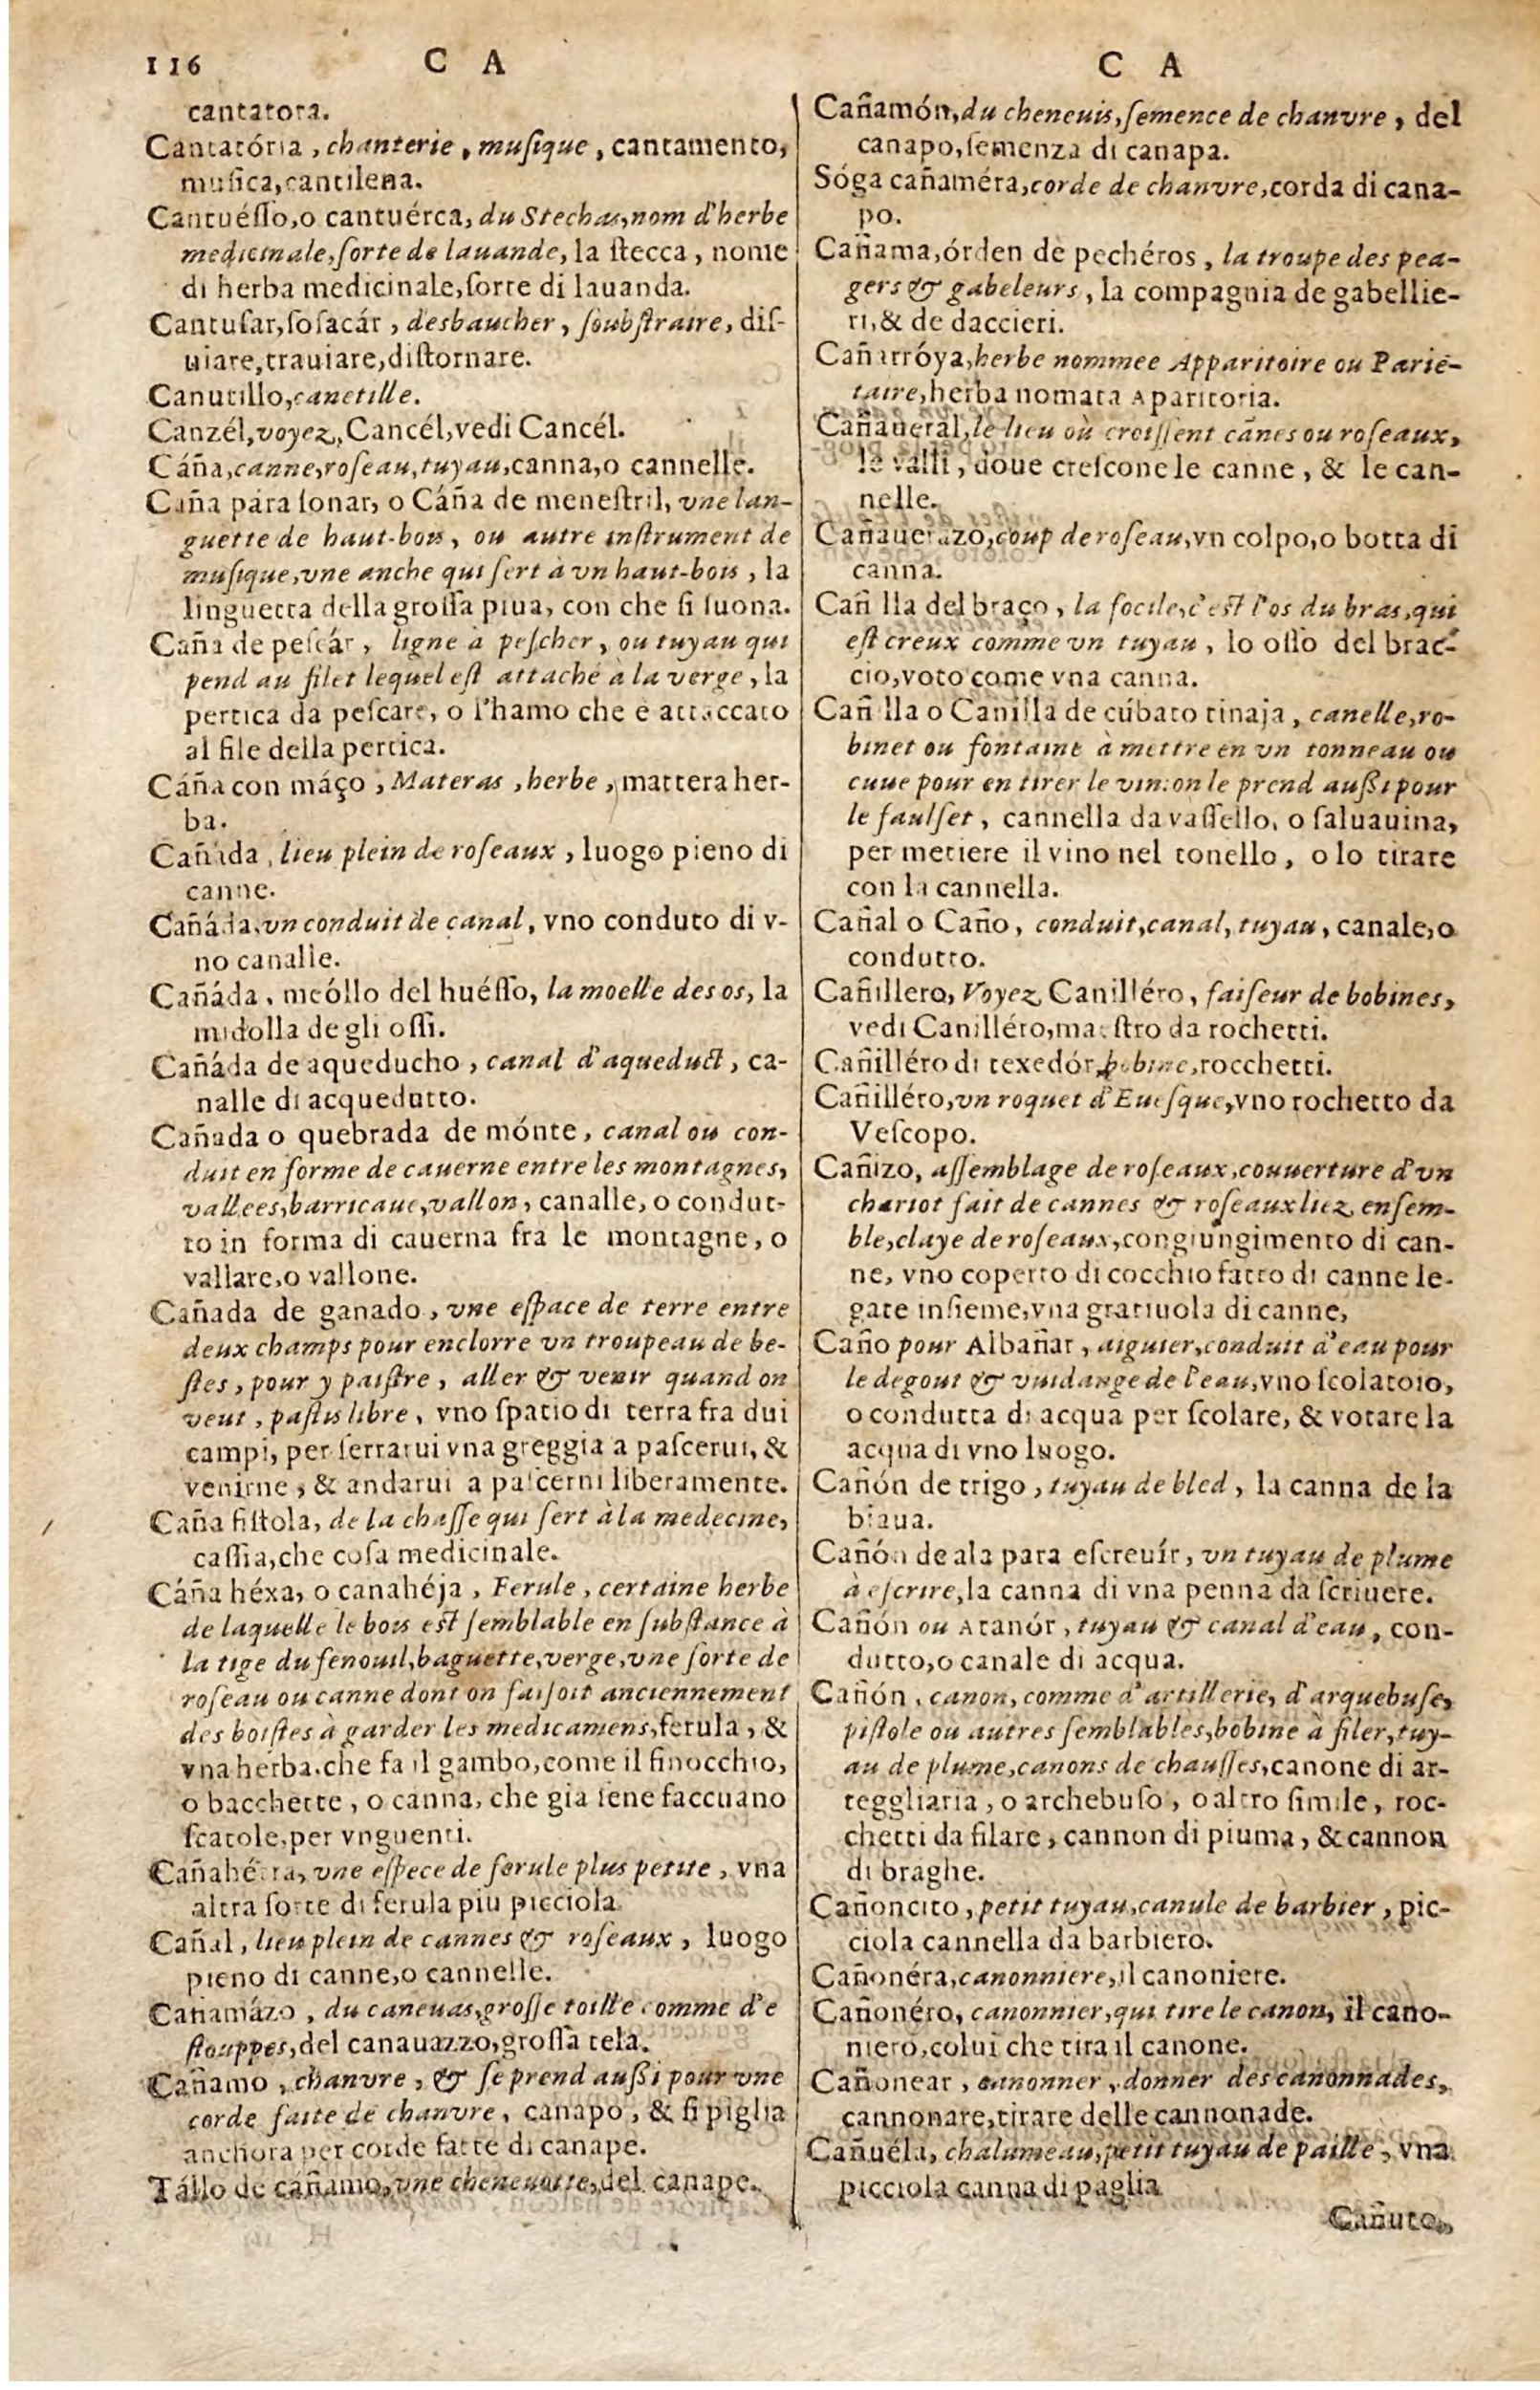 116 C A
cantatora.
Cantatória, chanterie, musique, cantamento,
musica, cantilena.
Cantuéſſo, o cantuérca, du Stechas, nom d'herbe
medicinale, ſorte de lauande, la ſtecca, nome
di herba medicinale, ſorte di lauanda.
Cantuſar, ſoſacár, desbaucher, ſoubſtraire, diſ-
uiare, trauiare, diſtornare.
Canutillo, canetille.
Canzél, voyez, Cancél, vedi Cancél.
Cáña, canne, roſeau, tuyau, canna, o cannelle.
Caña pára ſonar, o Cáña de meneſtril, vne lan-
guette de haut-bois, ou autre inſtrument de
muſique, vne anche qui ſert à vn haut-bois, la
linguetta della groſſa piua, con che ſi ſuona.
Caña de peſcár, ligne à peſcher, ou tuyau qui
pend au filet lequel eſt attaché à la verge, la
pertica da peſcare, o l'hamo che è attaccato
al file della pertica.
Cáña con máço, Materas, herbe, mattera her-
ba.
Cañada, lieu plein de roſeaux, luogo pieno di
canne.
Cañáda, vn conduit de canal, vno conduto di v-
no canalle.
Cañáda, meóllo del huéſſo, la moelle des os, la
midolla de gli oſſi.
Cañáda de aqueducho, canal d'aqueduct, ca-
nalle di acquedutto.
Cañada o quebrada de mónte, canal ou con-
duit en forme de cauerne entre les montagnes,
vallees, barricaue, vallon, canalle, o condut-
to in forma di cauerna fra le montagne, o
vallare, o vallone.
Cañada de ganado, vne eſpace de terre entre
deux champs pour enclorre vn troupeau de be-
ſtes, pour y paiſtre, aller & venir quand on
veut, paſtis libre, vno ſpatio di terra fra dui
campi, per ſerrarui vna greggia a paſcerui, &
venirne, & andarui a paſcerni liberamente.
Caña fiſtola, de la chaſſe qui ſert à la medecine,
caſſia, che coſa medicinale.
Cáña héxa, o canahéja, Ferule, certaine herbe
de laquelle le bois eſt ſemblable en ſubſtance à
la tige du fenouil, baguette, verge, vne ſorte de
roſeau ou canne dont on faiſoit anciennement
des boiſtes à garder les medicamens, ferula, &
vna herba, che fa il gambo, come il finocchio,
o bacchette, o canna, che gia ſene faccuano
ſcatole, per vnguenti.
Cañahérra, vne eſpece de ferule plus petite, vna
altra ſorte di ferula piu picciola
Cañal, lieu plein de cannes & roſeaux, luogo
pieno di canne, o cannelle.
Cañamázo, du caneuas, groſſe toille comme d'e
ſtouppes, del canauazzo, groſſa tela.
Cañamo, chanvre, & ſe prend auſſi pour vne
corde faite de chanvre, canapo, & ſi piglia
anchora per corde fatte di canape.
Tállo de cáñamo, vne cheneuotte, del canape.
C A
Cañamón, du cheneuis, ſemence de chanvre, del
canapo, ſemenza di canapa.
Sóga cañaméra, corde de chanvre, corda di cana-
po.
Cañama, órden de pechéros, la troupe des pea-
gers & gabeleurs, la compagnia de gabellie-
ri, & de daccieri.
Cañarróya, herbe nommee Apparitoire ou Parie-
taire, herba nomata Aparitoria.
Cañaueral, le lieu où croiſſent cānes ou roſeaux,
le valli, doue creſcone le canne, & le can-
nelle.
Cañauerazo, coup de roſeau, vn colpo, o botta di
canna.
Cañilla del braço, la focile, c'eſt l'os du bras, qui
eſt creux comme vn tuyau, lo oſſo del brac-
cio, voto come vna canna.
Cañilla o Canilla de cúba to tinaja, canelle, ro-
binet ou fontaine à mettre en vn tonneau ou
cuue pour en tirer le vin: on le prend auſſi pour
le faulſet, cannella da vaſſello, o ſaluauina,
per metiere il vino nel tonello, o lo tirare
con la cannella.
Cañal o Caño, conduit, canal, tuyau, canale, o
condutto.
Cañillero, Voyez Canilléro, faiſeur de bobines,
vedi Canilléro, maeſtro da rochetti.
Cañilléro di texedór, bobine, rocchetti.
Cañilléro, vn roquet d'Eueſque, vno rochetto da
Veſcopo.
Cañizo, aſſemblage de roſeaux, couuerture d'vn
chariot fait de cannes & roſeaux liez enſem-
ble, claye de roſeaux, congiungimento di can-
ne, vno coperto di cocchio fatto di canne le-
gate inſieme, vna gratiuola di canne,
Caño pour Albañar, aiguier, conduit d'eau pour
le degout & vuidange de l'eau, vno ſcolatoio,
o condutta di acqua per ſcolare, & votare la
acqua di vno luogo.
Cañón de trigo, tuyau de bled, la canna de la
biaua.
Cañón de ala para eſcreuír, vn tuyau de plume
à eſcrire, la canna di vna penna da ſcriuere.
Cañón ou Atanór, tuyau & canal d'eau, con-
dutto, o canale di acqua.
Cañón, canon, comme d'artillerie, d'arquebuſe,
piſtole ou autres ſemblables, bobine à filer, tuy-
au de plume, canons de chauſſes, canone di ar-
teggliaria, o archebuſo, o altro ſimile, roc-
chetti da filare, cannon di piuma, & cannon
di braghe.
Cañoncito, petit tuyau, canule de barbier, pic-
ciola cannella da barbiero.
Cañonéra, canonniere, il canoniere.
Cañonéro, canonnier, qui tire le canon, il cano-
niero, colui che tira il canone.
Cañonear, canonner, donner des canonnades,
cannonare, tirare delle cannonade.
Cañuéla, chalumeau, petit tuyau de paille, vna
picciola canna di paglia
Cañuto,